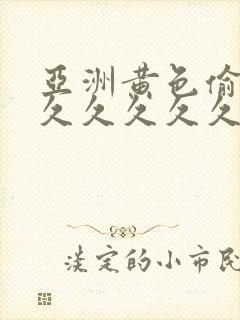 亞洲黃色偷
久久久久久
淡定的小市民